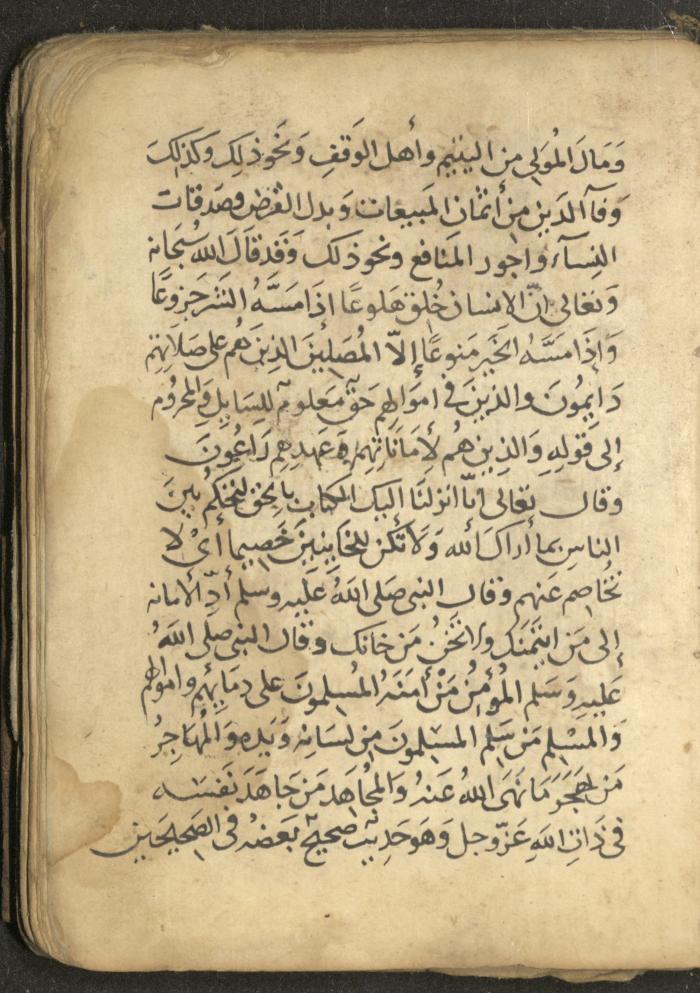 وَمَالَ المُوَلى من اليتيم وأهل الوَقفِ وَنَحو ذلك وكذلك
وَفآ الدَيون من أثمان المَبيعات وَبدل القرض وصَدقات
النِسآء واجور المنَافع ونحو ذلك وَقد قَالَ اللهُ سُبحَانه
وَتعَالى انّ الانسان خُلق هَلوعًا اذَا مَسَّهُ الشَر جَزوعًا
وَاِذَا مَسَّهُ الخَير مَنوعًا إلاّ المُصَلينَ الذِينَ هُم على صَلَاتِهِم
دَايِمُونَ والذينَ في اموَالِهم حَقٌ مَعلومٌ للِسَايلِ وَالمحرُوم
إلى قَولِهِ وَالذِين هُم لأِمَانَاتِهِم وَعَهدِهِم رَاعُونَ
وقال تعَالى اِنّا انزلنَا اليكَ الكتابَ بِالحق لتحكُم بَينَ
الناسِ بما أرَاكَ الله وَلا تَكُن للخَاينِينَ خَصِيما أيْ لا
تخَاصم عَنهم وقال النبى صَلى اللهُ عَليه وسلم أدِّ الأمانه
إلى مَن ايتَمنَك ولا تَخُن مَن خانك وقال النبى صلى اللهُ
عَليهِ وَسَلم المُؤمنُ مَنْ أمِنَهُ المُسلمونَ على دِمَايهُم واموالهم
وَالمسْلِم مَن سَلِم المسْلِمونَ من لسَانِه وَيَده وَالمُهَاجِرُ
مَن هَجَرَ مَا نَهَى اللهُ عَنهُ وَالمجُاهِد مَن جَاهَدَ نَفسَه
فى ذَاتِ اللهِ عَزّ وجل وَهوَ حَدِيث صَحِيحٌ بَعضُه فى الصَحِيحَين